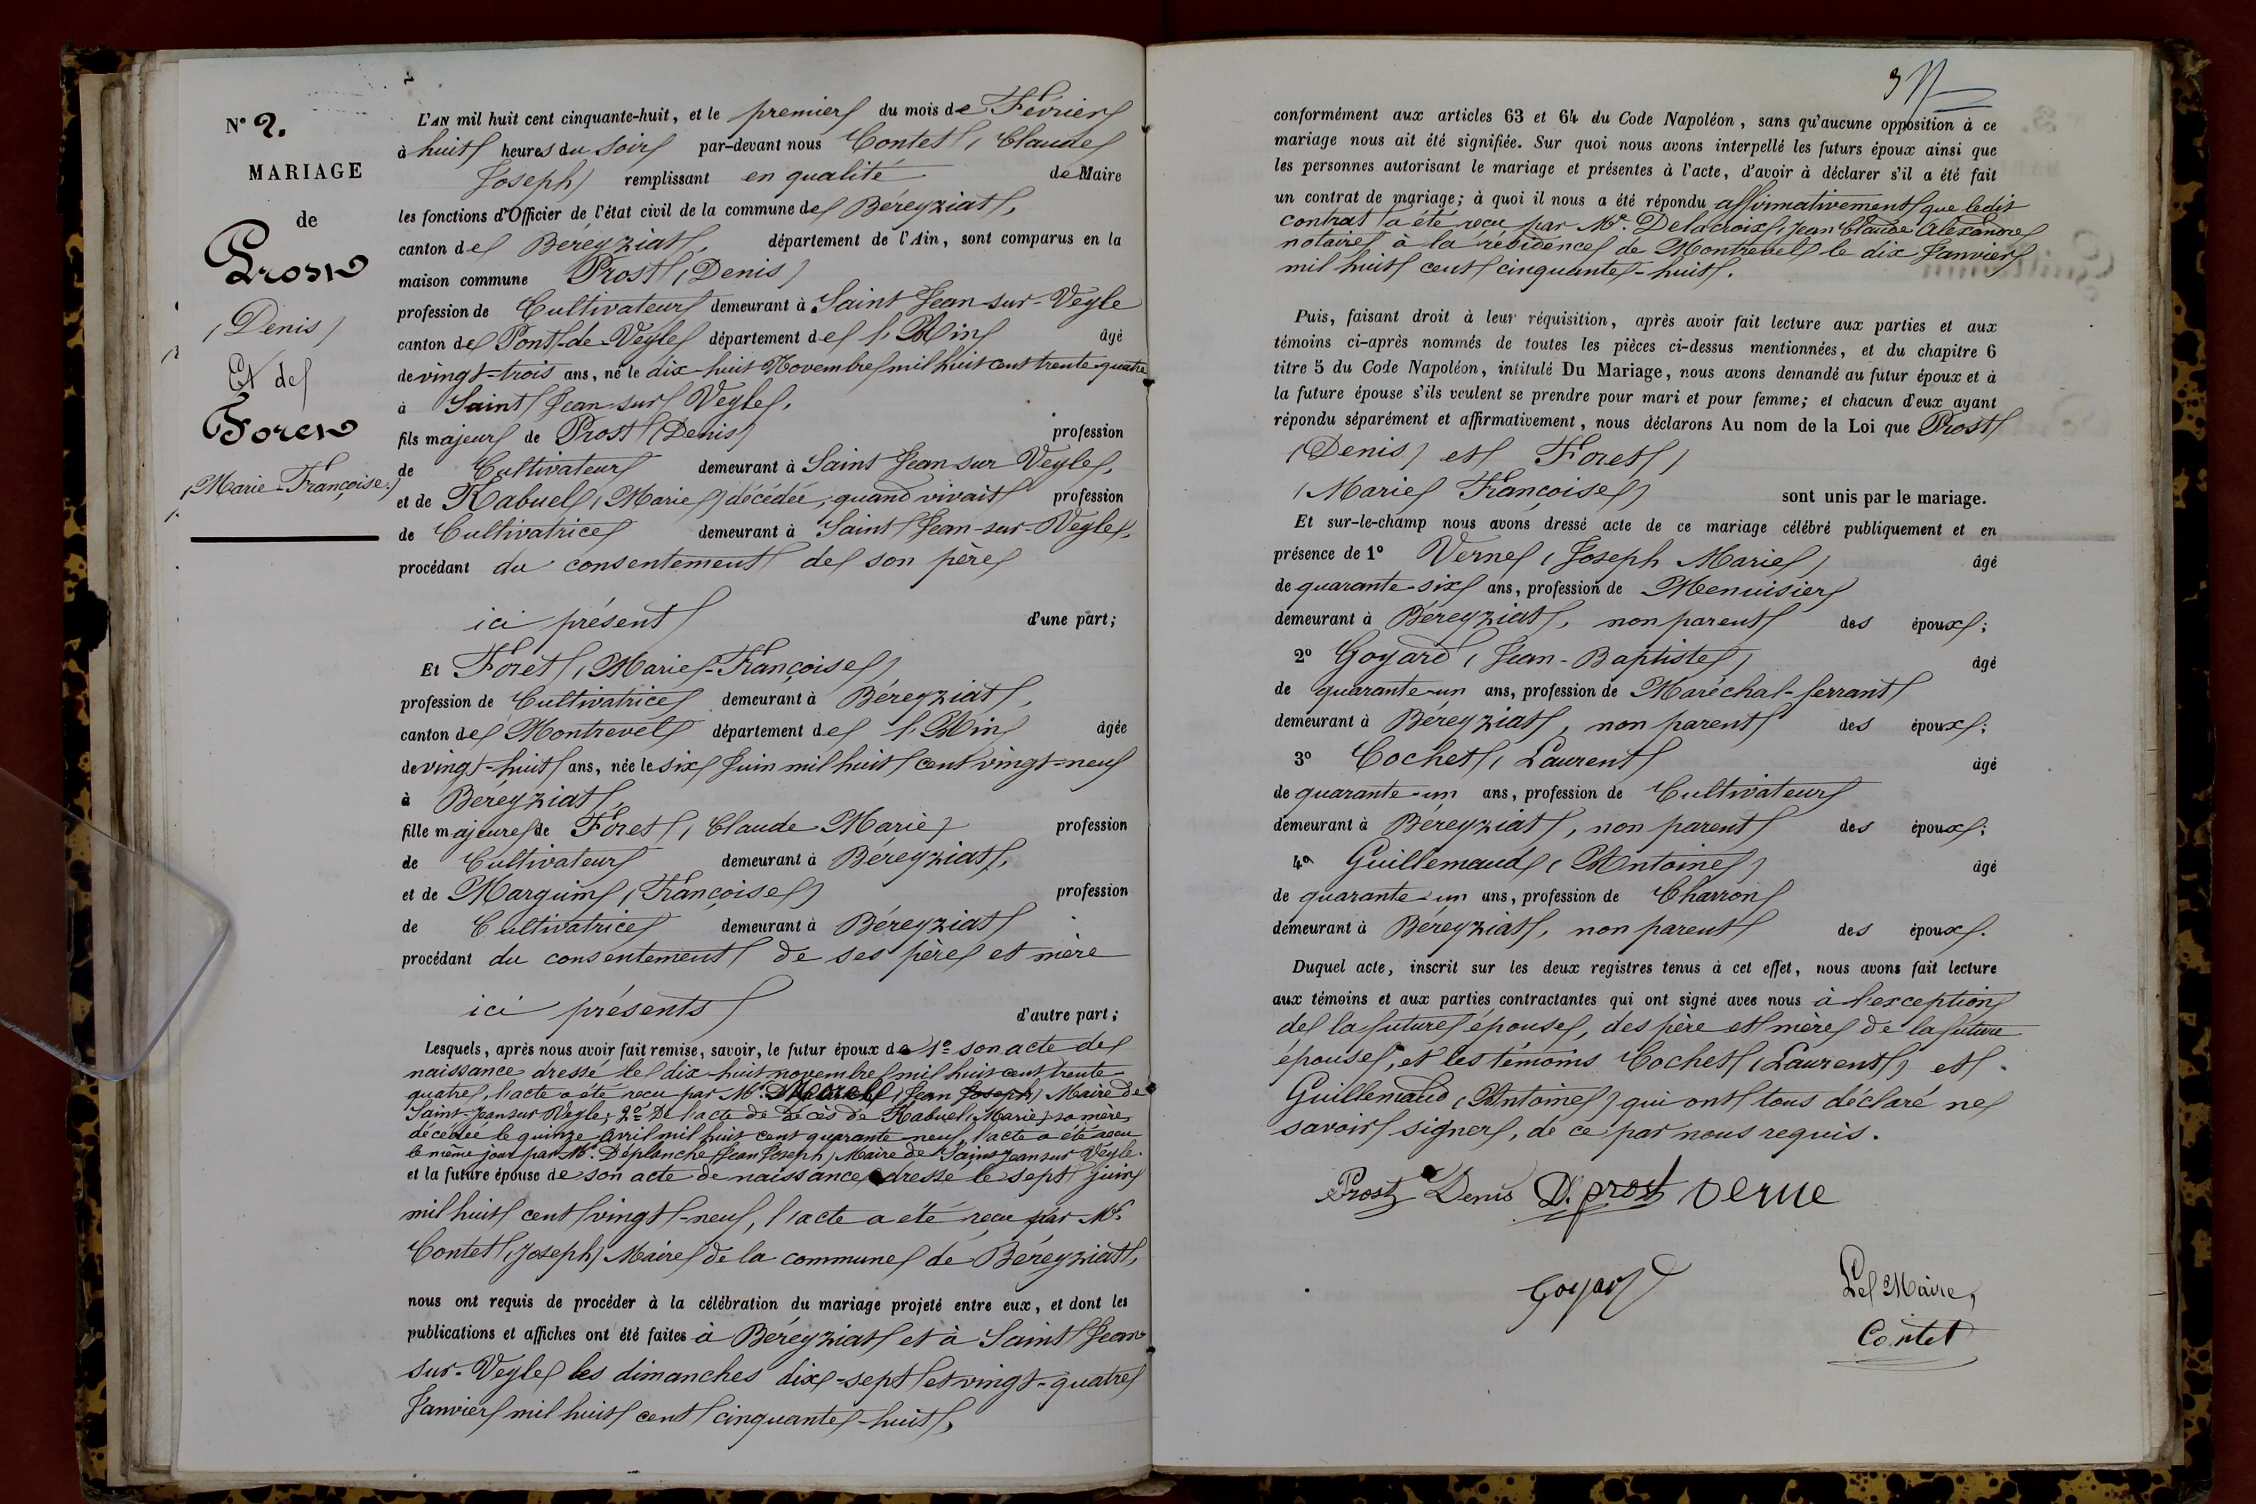 N° 2.
MARIAGE
de
Prost
(Denis)
Et de
Foret
(Marie-Françoise.)
L'AN mil huit cent cinquante-huit, et le premier du mois de Février
à huit heures du soir par-devant nous Contet (Claude
Joseph) remplissant en qualité de Maire
les fonctions d'Officier de l'état civil de la commune de Béreyziat,
canton de Béreyziat, département de l'Ain, sont comparus en la
maison commune Prost (Denis)
profession de Cultivateur demeurant à Saint Jean-sur-Veyle
canton de Pont-de-Veyle département de l'Ain âgé
de vingt-trois ans, né le dix-huit Novembre mil huit cent trente-quatre
à Saint Jean-sur Veyle,
fils majeur de Prost (Denis) profession
de Cultivateur demeurant à Saint Jean sur Veyle,
et de Rabuel (Marie) décédée, quand vivait profession
de Cultivatrice demeurant à Saint Jean-sur-Veyle,
procédant du consentement de son père
ici présent d'une part;
Et Foret (Marie-Françoise)
profession de Cultivatrice demeurant à Béreyziat,
canton de Montrevel département de l'Ain âgée
de vingt-huit ans, née le six Juin mil huit cent vingt-neuf
à Béreyziat
fille majeure de Foret (Claude Marie) profession
de Cultivateur demeurant à Béreyziat,
et de Marguin (Françoise) profession
de Cultivatrice demeurant à Béreyziat
procédant du consentement de ses père et mère
ici présents d'autre part;
Lesquels, après nous avoir fait remise, savoir, le futur époux de 1° son acte de
naissance dressé le dix-huit novembre mil huit cent trente-
quatre, l'acte a été reçu par Mr. (Jean Joseph) Maire de
Saint-Jean sur Veyle; 2° De l'acte de décès de Rabuel (Marie) sa mère,
décédée le quinze Avril mil huit cent quarante-neuf, l'acte a été reçu
le même jour par Mr. Déplanche (Jean Joseph) Maire de Saint Jean sur Veyle.
et la future épouse de son acte de naissance dressé le sept juin
mil huit cent vingt-neuf, l'acte a été reçu par Mr.
Contet (Joseph) Maire de la commune de Béreyziat,
nous ont requis de procéder à la célébration du mariage projeté entre eux, et dont les
publications et affiches ont été faites à Béreyziat et à Saint Jean
sur-Veyle les dimanches dix-sept et vingt-quatre
Janvier mil huit cent cinquante-huit,
3
conformément aux articles 63 et 64 du Code Napoléon, sans qu'aucune opposition à ce
mariage nous ait été signifiée. Sur quoi nous avons interpellé les futurs époux ainsi que
les personnes autorisant le mariage et présentes à l'acte, d'avoir à déclarer s'il a été fait
un contrat de mariage; à quoi il nous a été répondu affirmativement que ledit
contrat a été reçu par Me. Delacroix (Jean Claude Alexandre
notaire à la résidence de Montrevel le dix Janvier
mil huit cent cinquante-huit.
Puis, faisant droit à leur réquisition, après avoir fait lecture aux parties et aux
témoins ci-après nommés de toutes les pièces ci-dessus mentionnées, et du chapitre 6
titre 5 du Code Napoléon, intitulé Du Mariage, nous avons demandé au futur époux et à
la future épouse s'ils veulent se prendre pour mari et pour femme; et chacun d'eux ayant
répondu séparément et affirmativement, nous déclarons Au nom de la Loi que Prost
(Denis) et Foret,
(Marie Françoise) sont unis par le mariage.
Et sur-le-champ nous avons dressé acte de ce mariage célébré publiquement et en
présence de 1° Verne (Joseph Marie) âgé
de quarante-six ans, profession de Menuisier
demeurant à Béreyziat, non parent des époux;
2° Goyard (Jean-Baptiste) âgé
de quarante-un ans, profession de Maréchal-ferrant
demeurant à Béreyziat, non parent des époux;
3° Cochet (Laurent âgé
de quarante-un ans, profession de Cultivateur
demeurant à Béreyziat, non parent des époux;
4° Guillemaud (Antoine) âgé
de quarante-un ans, profession de Charron
demeurant à Béreyziat, non parent des époux.
Duquel acte, inscrit sur les deux registres tenus à cet effet, nous avons fait lecture
aux témoins et aux parties contractantes qui ont signé avec nous à l'exception
de la future épouse, des père et mère de la future
épouse, et les témoins Cochet (Laurent) et
Guillemaud (Antoine) qui ont tous déclaré ne
savoir signer, de ce par nous requis.
Prost Denis D. prost verne
Goyard
Le Maire,
Contet